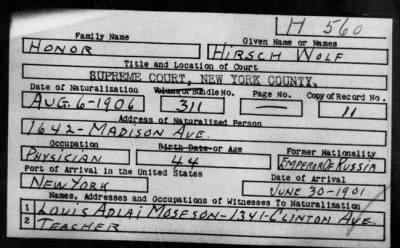 H 560
Family Name Given Name or Names
HONOR HIRSCH WOLF
Title and Location of Court
SUPREME COURT, NEW YORK COUNTY.
Date of Naturalization Volume or Bundle No. Page No. Copy of Record No.
AUG. 6-1906 311 — 11
Address of Naturalized Person
1642-MADISON AVE.
Occupation Birth Date or Age Former Nationality
PHYSICIAN 44 EMPEROR OF RUSSIA
Port of Arrival in the United States Date of Arrival
NEW YORK JUNE 30-1901
Names, Addresses and Occupations of Witnesses To Naturalization
1 LOUIS ADLAI MOSESON-1341-CLINTON AVE.
2 TEACHER